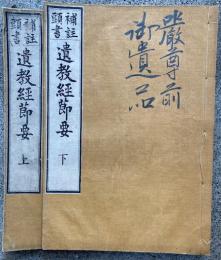 嚴尊前
御遺品
補註
頭書
遺教經節要 下
補註
頭書
遺教經節要 上